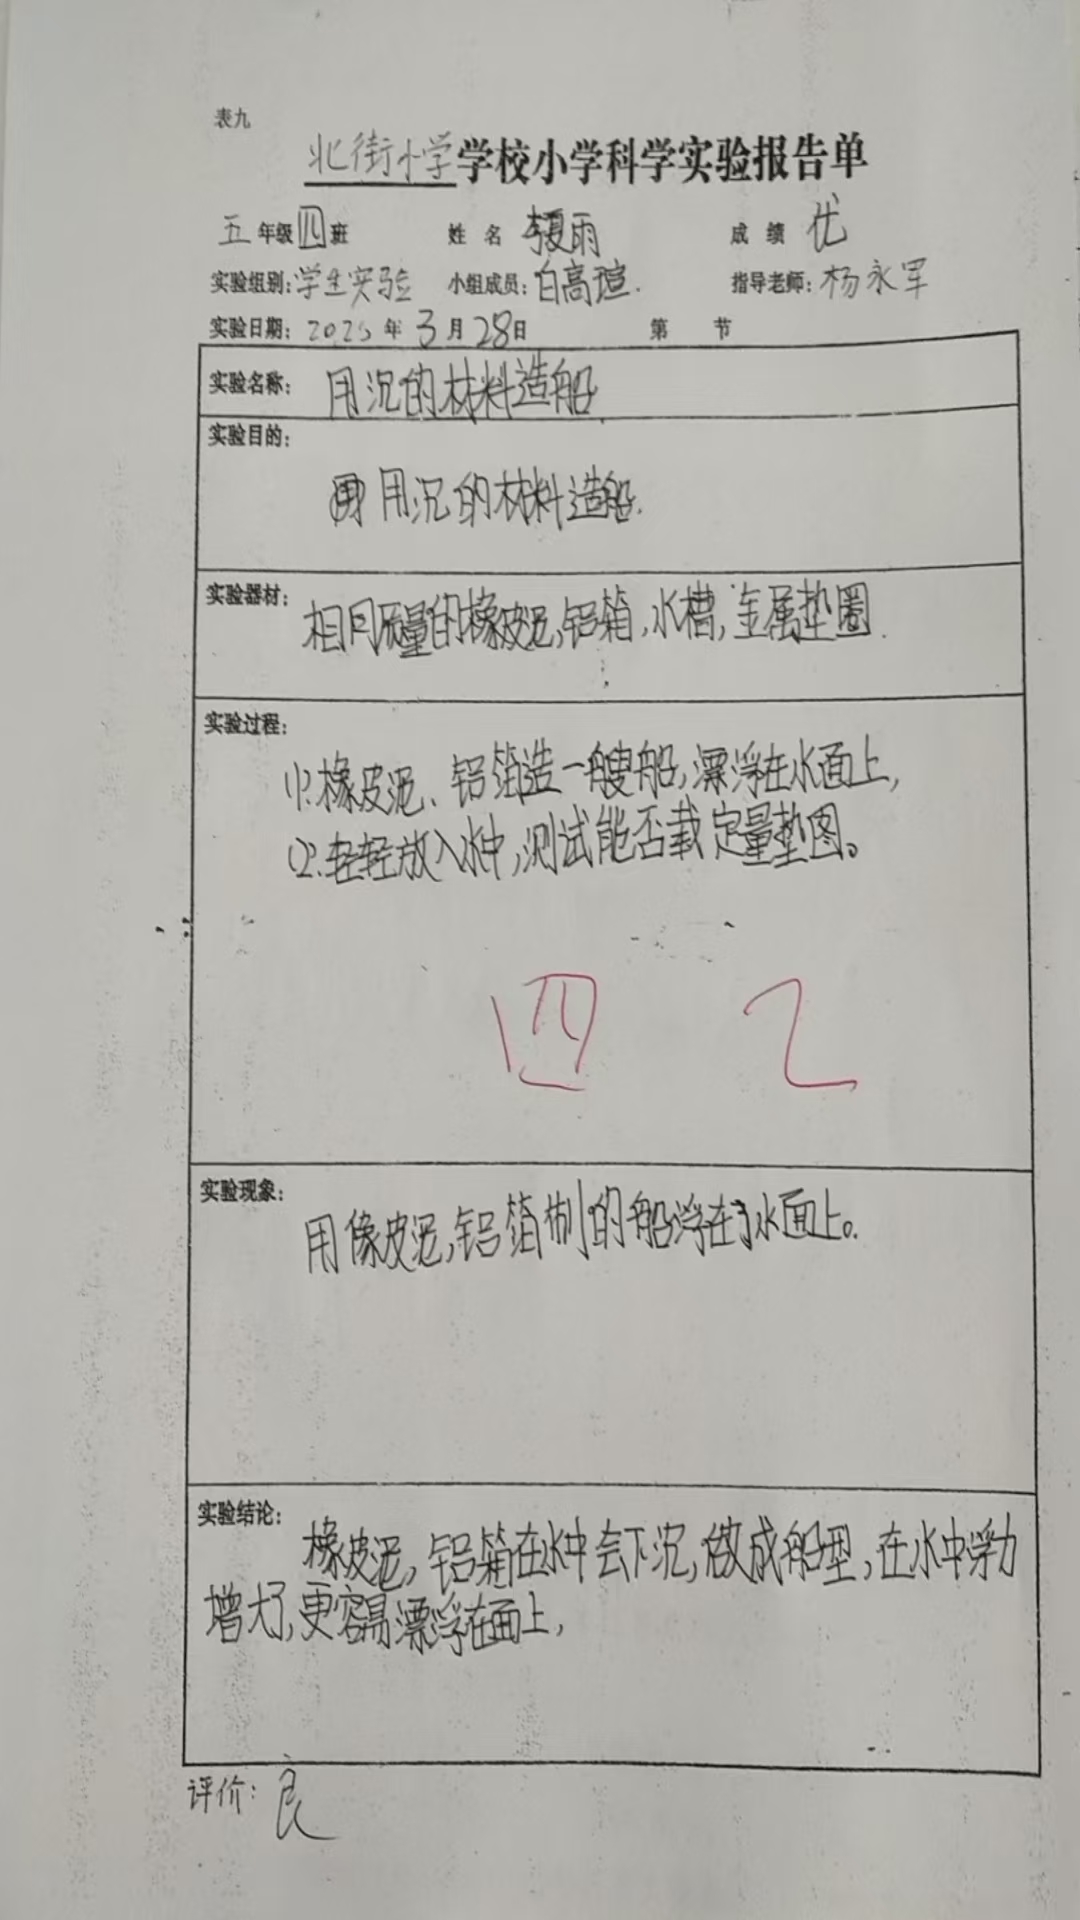 表九
北街小学学校小学科学实验报告单
五年级四班 姓名 李夏雨 成绩 优
实验组别:学生实验 小组成员:白高瑄. 指导老师:杨永军
实验日期:2025年3月28日 第 节
实验名称: 用沉的材料造船
实验目的:
用沉的材料造船.
实验器材: 相同质量的橡皮泥,铝箱,水槽,金属垫圈.
实验过程:
(1).橡皮泥、铝箔造一艘船,漂浮在水面上,
(2).轻轻放入水中,测试能否载定量垫图。
四 2
实验现象:
用像皮泥,铝箔制的船浮在了水面上。
实验结论: 橡皮泥,铝箱在水中会下沉,做成船型,在水中浮力
增大了,更容易漂浮在面上,
评价: 良